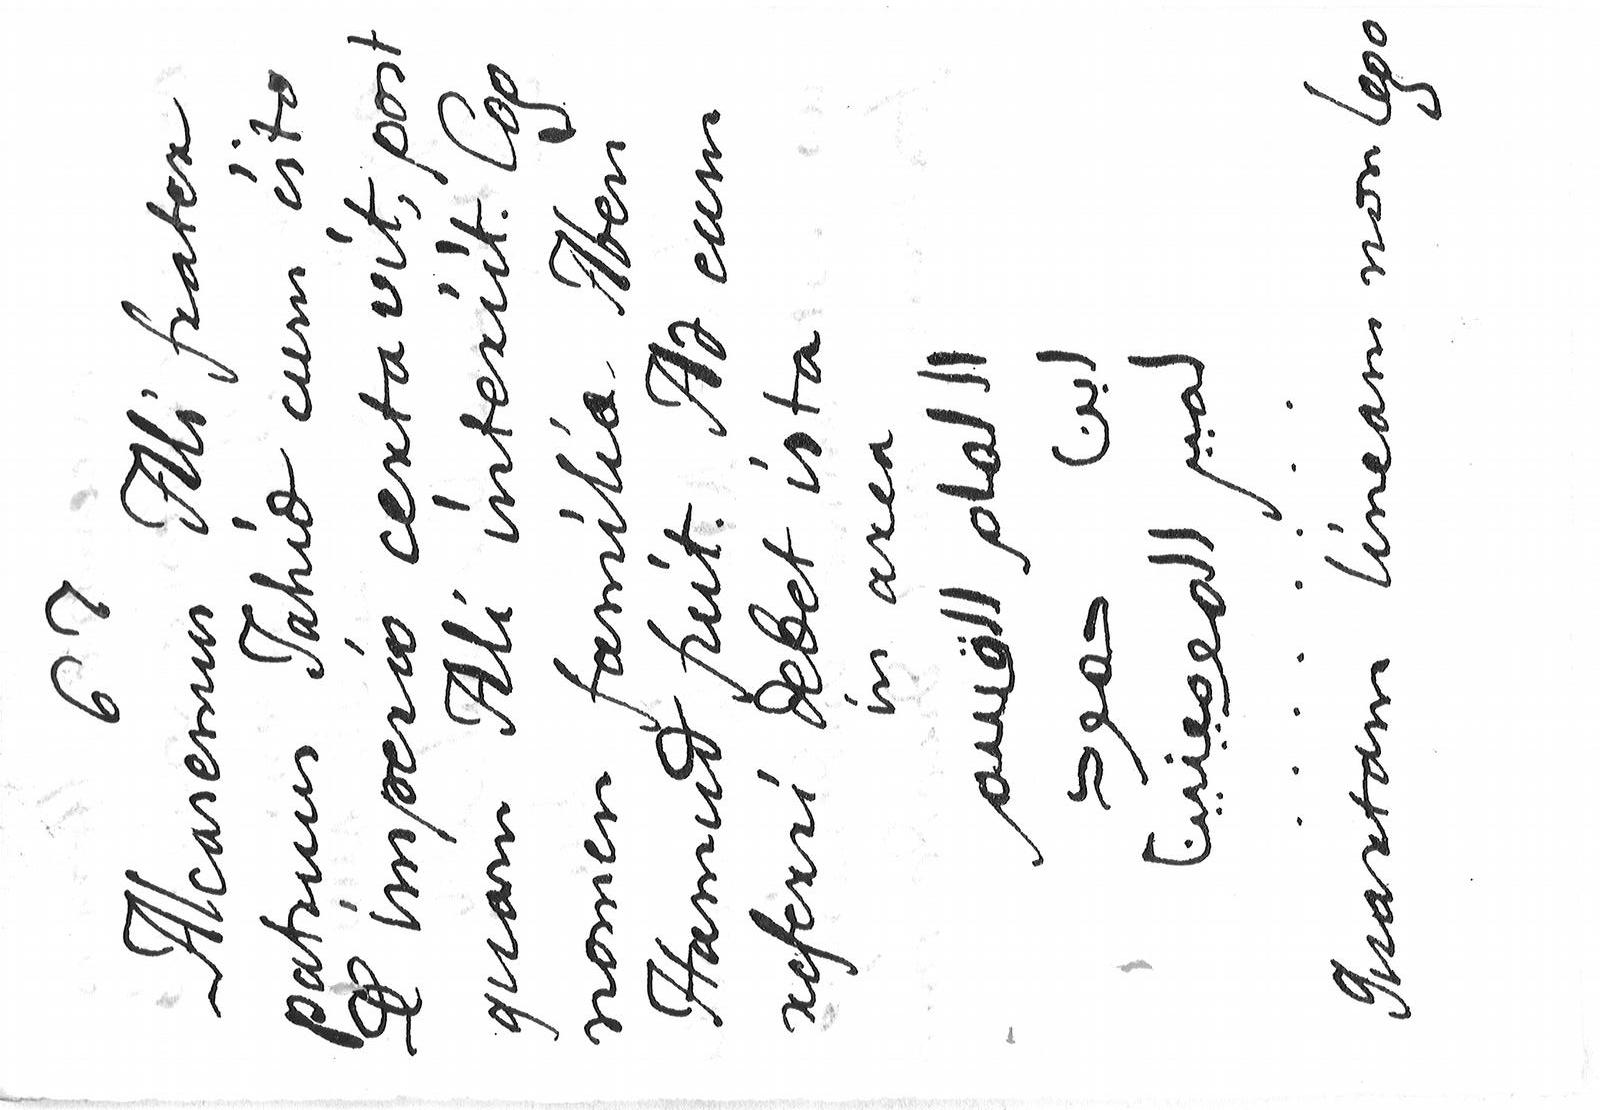 67
Alcasemus Ali frater
patruus Iahid cum isto
de imperio certavit, post
quam Ali interiit. Cog
nomen familia. Aben
Hamud fuit. Ad eum
referri debet ista
in area
الامام القسم
ابن حمود
امير المومنين
. . . . . . . .
Quartam lineam non lego